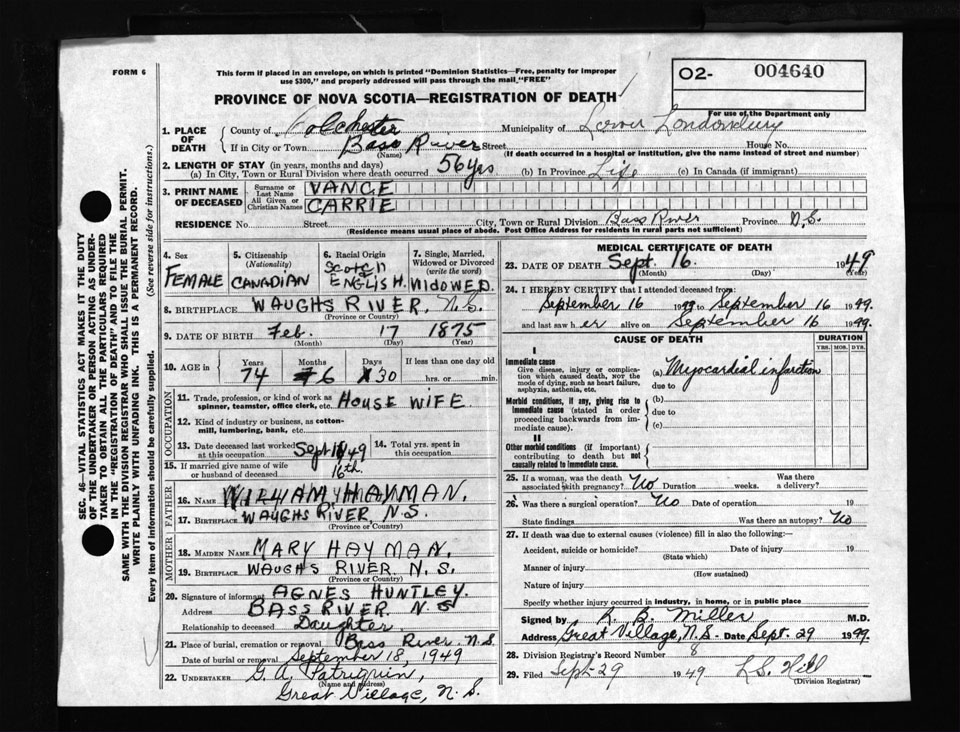 FORM 6
This form if placed in an envelope, on which is printed "Dominion Statistics—Free, penalty for improper
use $300," and properly addressed will pass through the mail, "FREE"
O2- 004640
For use of the Department only
PROVINCE OF NOVA SCOTIA—REGISTRATION OF DEATH
1. PLACE OF DEATH
County of Colchester Municipality of Lower Londonderry
If in City or Town Bass River Street House No.
(Name) (If death occurred in a hospital or institution, give the name instead of street and number)
2. LENGTH OF STAY (in years, months and days)
(a) In City, Town or Rural Division where death occurred 56 yrs (b) In Province Life (c) In Canada (if immigrant)
3. PRINT NAME OF DECEASED
Surname or Last Name VANCE
All Given or Christian Names CARRIE
RESIDENCE No. Street City, Town or Rural Division Bass River Province N.S.
(Residence means usual place of abode. Post Office Address for residents in rural parts not sufficient)
4. Sex FEMALE
5. Citizenship (Nationality) CANADIAN
6. Racial Origin SCOTCH ENGLISH
7. Single, Married, Widowed or Divorced (write the word) WIDOWED.
8. BIRTHPLACE WAUGHS RIVER, N.S.
(Province or Country)
9. DATE OF BIRTH Feb. 17 1875
(Month) (Day) (Year)
10. AGE in Years 74 Months 6 Days 30 If less than one day old
hrs. or min.
OCCUPATION
11. Trade, profession, or kind of work as spinner, teamster, office clerk, etc. HOUSE WIFE
12. Kind of industry or business, as cotton-mill, lumbering, bank, etc.
13. Date deceased last worked at this occupation Sept 49 16th.
14. Total yrs. spent in this occupation
15. If married give name of wife or husband of deceased
FATHER
16. NAME WILLIAM HAYMAN.
17. BIRTHPLACE WAUGHS RIVER N.S.
(Province or Country)
MOTHER
18. MAIDEN NAME MARY HAYMAN.
19. BIRTHPLACE WAUGHS RIVER N.S.
(Province or Country)
20. Signature of informant AGNES HUNTLEY.
Address BASS RIVER N.S
Relationship to deceased Daughter.
21. Place of burial, cremation or removal Bass River N.S
Date of burial or removal September 18, 1949
22. UNDERTAKER G. A. Patriquin,
(Name and address)
Great Village, N.S.
MEDICAL CERTIFICATE OF DEATH
23. DATE OF DEATH Sept. 16. 1949
(Month) (Day) (Year)
24. I HEREBY CERTIFY that I attended deceased from:
September 16 1949 to September 16 1949.
and last saw her alive on September 16 1949.
CAUSE OF DEATH
DURATION
YRS. MOS. DYS.
I
Immediate cause
Give disease, injury or complication which caused death, not the mode of dying, such as heart failure, asphyxia, asthenia, etc.
(a) Myocardial infarction
due to
Morbid conditions, if any, giving rise to immediate cause (stated in order proceeding backwards from immediate cause).
(b)
due to
(c)
II
Other morbid conditions (if important) contributing to death but not causally related to immediate cause.
25. If a woman, was the death associated with pregnancy? No Duration weeks. Was there a delivery?
26. Was there a surgical operation? No Date of operation 19
State findings Was there an autopsy? No
27. If death was due to external causes (violence) fill in also the following:—
Accident, suicide or homicide? Date of injury 19
(State which)
Manner of injury
(How sustained)
Nature of injury
Specify whether injury occurred in industry, in home, or in public place
Signed by R B Miller M.D.
Address Great Village, N.S. - Date Sept. 29 1949.
28. Division Registrar's Record Number 8 19
29. Filed Sept 29 1949 L.S. Hill
(Division Registrar)
SEC. 46—VITAL STATISTICS ACT MAKES IT THE DUTY
OF THE UNDERTAKER OR PERSON ACTING AS UNDER-
TAKER TO OBTAIN ALL THE PARTICULARS REQUIRED
IN THE "REGISTRATION OF DEATH" AND TO FILE THE
SAME WITH THE DIVISION REGISTRAR WHO SHALL ISSUE THE BURIAL PERMIT.
WRITE PLAINLY WITH UNFADING INK. THIS IS A PERMANENT RECORD.
Every item of information should be carefully supplied. (See reverse side for instructions.)